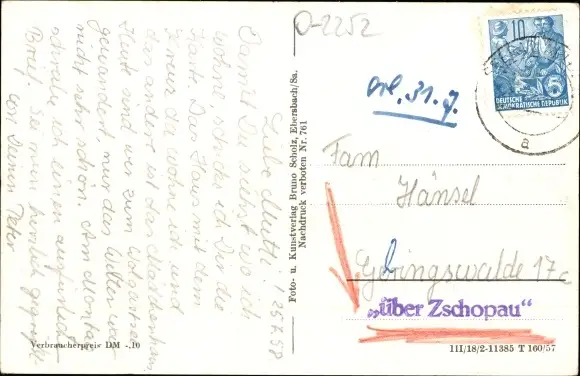 O-2252
Liebe Mutti! 25.7.58
Damit Du siehst wo ich
wohne, schicke ich Dir die
Karte. Das Haus mit dem
Kreuz da wohne ich und
das andere ist das Mädchenhaus.
Heute sind wir zum
gewandert, nur das Wetter war
nicht sehr schön. Am Montag
schreibe ich einen
Brief. herzlich gegrüßt
von Deinem Peter
Verbraucherpreis DM -,10
Foto- u. Kunstverlag Bruno Scholz, Ebersbach/Sa.
Nachdruck verboten Nr. 761
10
DEUTSCHE
DEMOKRATISCHE REPUBLIK
a
erl. 31. 7.
Fam
Hänsel
Gebringswalde 17c
„über Zschopau"
III/18/2-11385 T 160/57